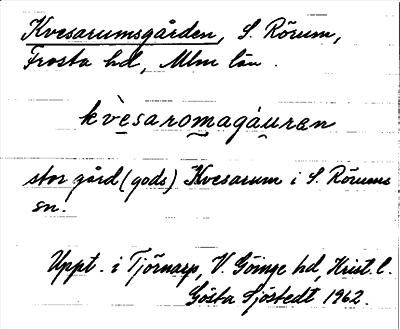 Kvesarumsgården, S. Rörum,
Frosta hd, Mlm län.
kvèsaromagåuran
stor gård (gods) Kvesarum i S. Rörums
sn.
Uppt. i Tjörnarp, V. Göinge hd, Krist. l.
Gösta Sjöstedt 1962.